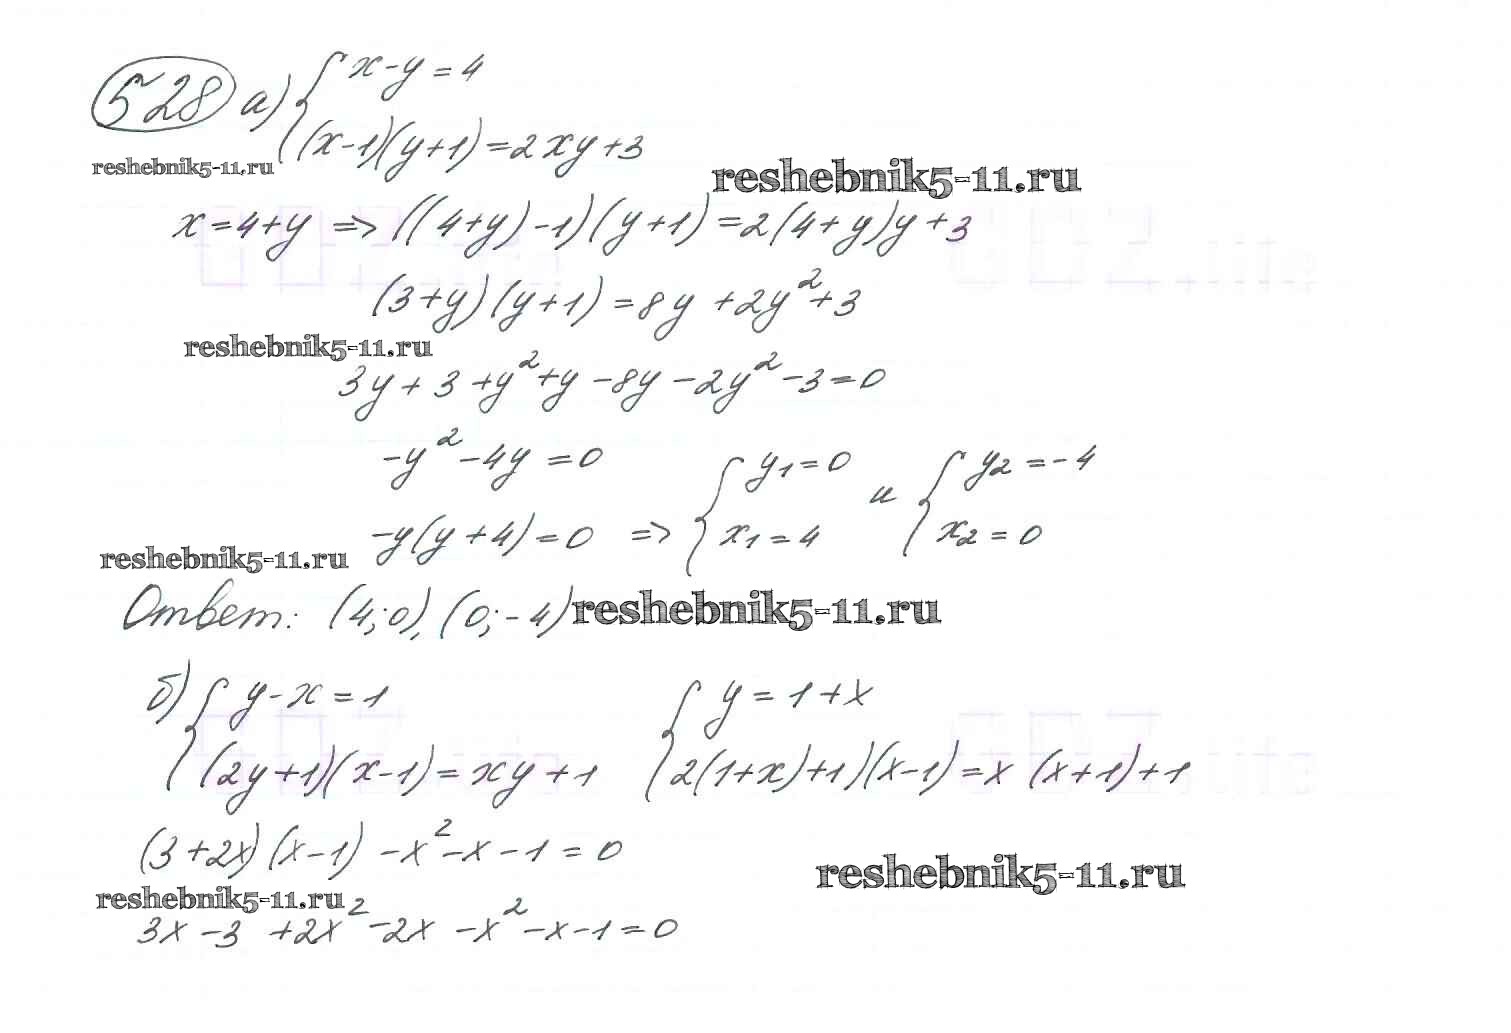 528 а) { x-y=4
(x-1)(y+1)=2xy+3
reshebnik5-11.ru
reshebnik5-11.ru
x=4+y => ((4+y)-1)(y+1)=2(4+y)y+3
(3+y)(y+1)=8y+2y²+3
reshebnik5-11.ru
3y+3+y²+y-8y-2y²-3=0
-y²-4y=0
-y(y+4)=0 => { y₁=0 x₁=4 и { y₂=-4 x₂=0
reshebnik5-11.ru
Ответ: (4;0), (0;-4)
reshebnik5-11.ru
б) { y-x=1 { y=1+x
(2y+1)(x-1)=xy+1 2(1+x)+1)(x-1)=x(x+1)+1
(3+2x)(x-1)-x²-x-1=0
reshebnik5-11.ru
reshebnik5-11.ru
3x-3+2x²-2x-x²-x-1=0